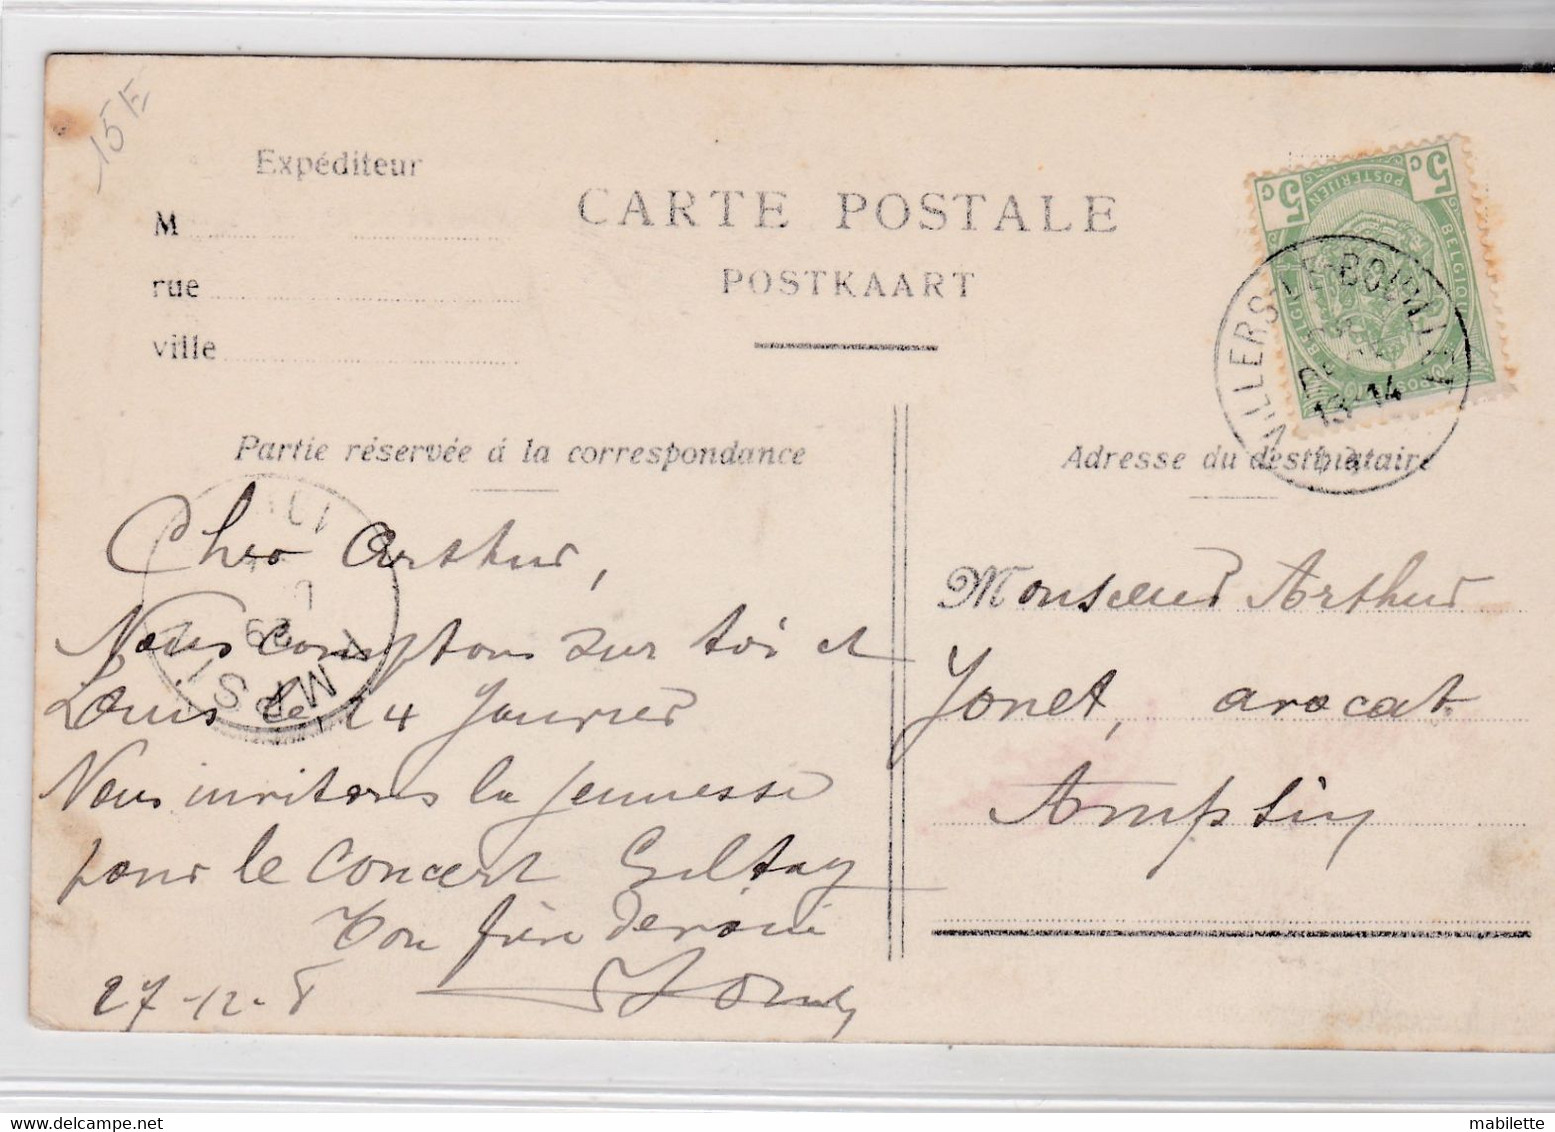 15 E
Expéditeur
M
rue
ville
CARTE POSTALE
POSTKAART
5 C 5 C
POSTERIJEN
BELGIQUE
BELGIE
POSTES
VILLERS-LE-BOUILLET
13-14
Partie réservée à la correspondance
Adresse du destinataire
Cher Arthur,
Nous comptons sur toi et
Louis le 24 Janvier
Nous invitons la jeunesse
pour le concert
Ton frère dévoué
27-12-8
AMPSIN
29
Monsieur Arthur
Jonet, avocat
Ampsin
mabilette